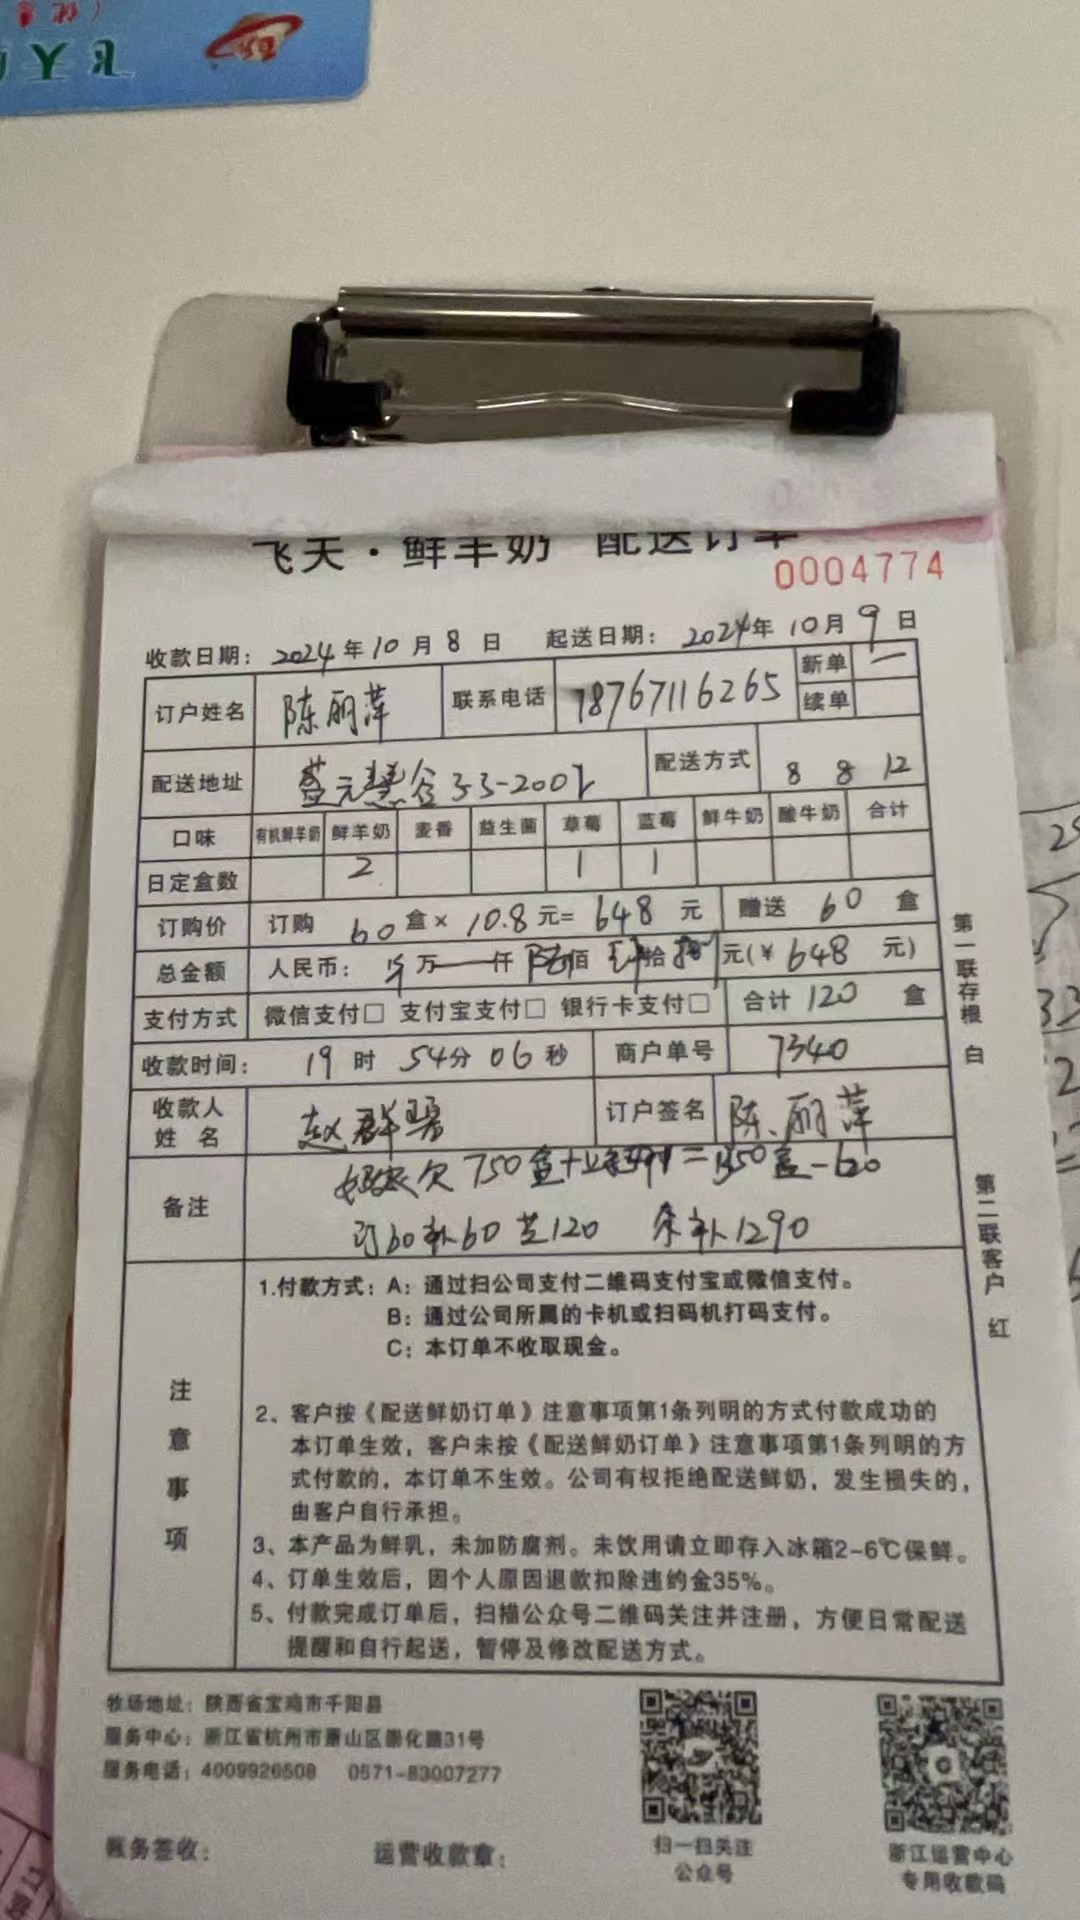 飞天·鲜羊奶 配送订单
0004774
收款日期：2024年10月8日 起送日期：2024年10月9日
订户姓名 陈丽萍 联系电话 18767116265 新单 一
续单
配送地址 蓝元慧谷33-2002 配送方式 8 8 12
口味 有机鲜羊奶 鲜羊奶 麦香 益生菌 草莓 蓝莓 鲜牛奶 酸牛奶 合计
日定盒数 2 1 1
订购价 订购 60盒×10.8元=648元 赠送 60 盒
总金额 人民币： 万 仟 陆佰 肆拾 捌元(￥648 元)
支付方式 微信支付□ 支付宝支付□ 银行卡支付□ 合计 120 盒
收款时间： 19时 54分 06秒 商户单号 7340
收款人姓名 赵群碧 订户签名 陈丽萍
备注 欠750盒+ 盒-60
订60补60共120 余补1290
注意事项
1.付款方式：A：通过扫公司支付二维码支付宝或微信支付。
B：通过公司所属的卡机或扫码机打码支付。
C：本订单不收取现金。
2、客户按《配送鲜奶订单》注意事项第1条列明的方式付款成功的
本订单生效，客户未按《配送鲜奶订单》注意事项第1条列明的方
式付款的，本订单不生效。公司有权拒绝配送鲜奶，发生损失的，
由客户自行承担。
3、本产品为鲜乳，未加防腐剂。未饮用请立即存入冰箱2-6℃保鲜。
4、订单生效后，因个人原因退款扣除违约金35%。
5、付款完成订单后，扫描公众号二维码关注并注册，方便日常配送
提醒和自行起送，暂停及修改配送方式。
第一联存根 白
第二联客户 红
牧场地址：陕西省宝鸡市千阳县
服务中心：浙江省杭州市萧山区崇化路31号
服务电话：4009926508 0571-83007277
账务签收： 运营收款章：
扫一扫关注
公众号
浙江运营中心
专用收款码